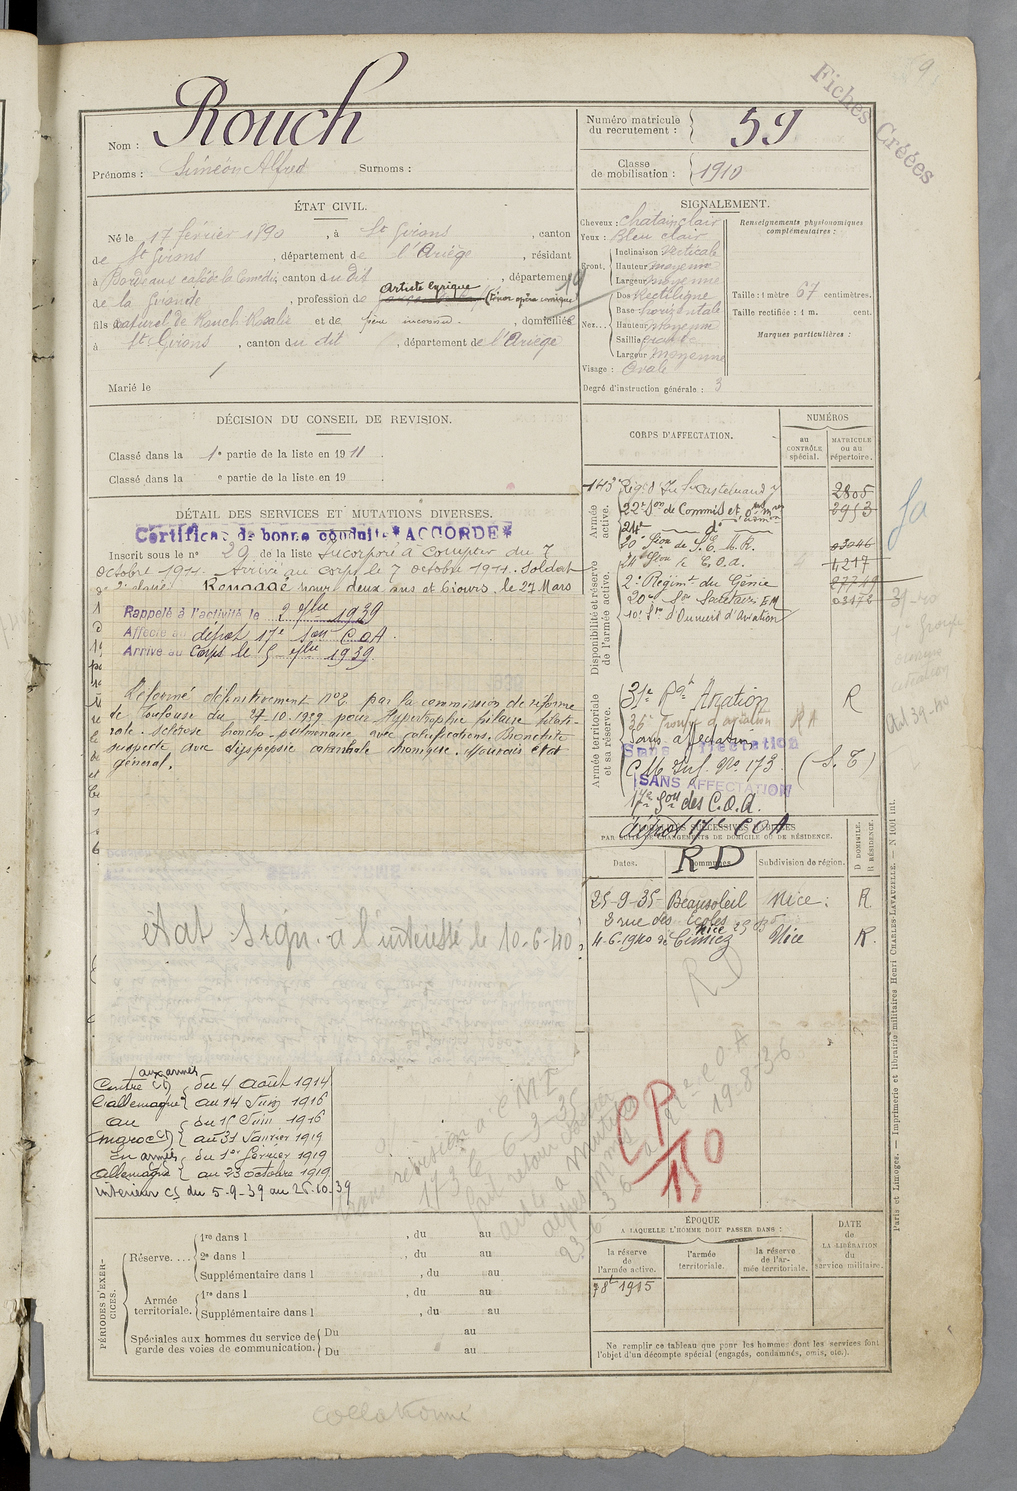 9
Fiches Créées
Nom : Rouch
Prénoms : Siméon Alfred Surnoms :
Numéro matricule du recrutement : 59
Classe de mobilisation : 1910
ÉTAT CIVIL.
Né le 17 février 1890, à St Girons, canton
de St Girons, département de l'Ariège, résidant
à Bordeaux café de la Comédie, canton du dit, département
de la Gironde, profession de Artiste lyrique (ténor opéra comique)
fils naturel de Rouch Rosalie et de père inconnu, domiciliés
à St Girons, canton du dit, département de l'Ariège
Marié le
19
SIGNALEMENT.
Cheveux : Chatain clair
Yeux : Bleu clair
Front. Inclinaison Verticale
Hauteur moyenne
Largeur moyenne
Nez... Dos Rectiligne
Base horizontale
Hauteur moyenne
Saillie
Largeur moyenne
Visage : Ovale
Renseignements physionomiques complémentaires :
Taille : 1 mètre 67 centimètres.
Taille rectifiée : 1 m. cent.
Marques particulières :
Degré d'instruction générale : 3
DÉCISION DU CONSEIL DE REVISION.
Classé dans la 1e partie de la liste en 1911
Classé dans la e partie de la liste en 19
DÉTAIL DES SERVICES ET MUTATIONS DIVERSES.
Certificat de bonne conduite *ACCORDÉ*
Inscrit sous le n° 29 de la liste Incorporé à compter du 7
octobre 1911. Arrivé au corps le 7 octobre 1911. Soldat
de 2e classe. Rengagé pour deux ans et 6 jours, le 27 Mars
Rappelé à l'activité le 2 7bre 1939
Affecté au dépôt 17e Son C.O.A.
Arrivé au Corps le 5 7bre 1939.
Réformé définitivement n°2 par la commission de réforme
de Toulouse du 27-10-1939 pour Hypertrophie hilaire bilaté-
rale - sclérose broncho-pulmonaire avec calcifications. Bronchite
suspecte avec dyspepsie chronique. Mauvais état
général.
état sign. à l'intéressé le 10-6-40
aux armées
Contre Cs du 4 août 1914
L'allemagne au 14 Juin 1916
au du 15 Juin 1916
maroc Cs au 31 Janvier 1919
En armée du 1er février 1919
allemagne au 23 octobre 1919
Intérieur Cs du 5-9-39 au 26-10-39
CORPS D'AFFECTATION.
NUMÉROS
au CONTRÔLE spécial.
MATRICULE ou au répertoire.
Armée active.
143e Rég. d'Inf. Castelnaudary 2805
22e Son de Commis et ouvriers 2953
24e do
20e Son de S.E.M.R. 03046
24e Son de C.O.A. 4217
Disponibilité et réserve de l'armée active.
2e Régiment du Génie 27719
20e Son Secrétaires EM 03172
10e d'Ouvriers d'Aviation
Armée territoriale et sa réserve.
31e Rgt Aviation R
36e d'aviation RA
Sans affectation
Sans affectation
C.M. Inf. No 173 (S.T)
SANS AFFECTATION
17e Son des C.O.A.
dépôt 17e COA
LOCALITÉS SUCCESSIVES HABITÉES
PAR SUITE DE CHANGEMENTS DE DOMICILE OU DE RÉSIDENCE.
Dates. Communes. Subdivision de région. D DOMICILE. R RÉSIDENCE.
RD
25-9-35 Beausoleil Nice : R
3 rue des Écoles
4-6-1940 Nice Cimiez Nice R.
RD
CP
150
19-8-36
PÉRIODES D'EXERCICES.
Réserve.... 1re dans l , du au
2e dans l , du au
Supplémentaire dans l , du au
Armée territoriale. 1re dans l , du au
Supplémentaire dans l , du au
Spéciales aux hommes du service de garde des voies de communication. Du au
Du au
ÉPOQUE
A LAQUELLE L'HOMME DOIT PASSER DANS :
la réserve de l'armée active.
l'armée territoriale.
la réserve de l'armée territoriale.
DATE DE LA LIBÉRATION du service militaire.
7 8bre 1915
Ne remplir ce tableau que pour les hommes dont les services font
l'objet d'un décompte spécial (engagés, condamnés, omis, etc.).
Paris et Limoges. — Imprimerie et librairie militaires Henri CHARLES-LAVAUZELLE. — N 1001 int.
collationné